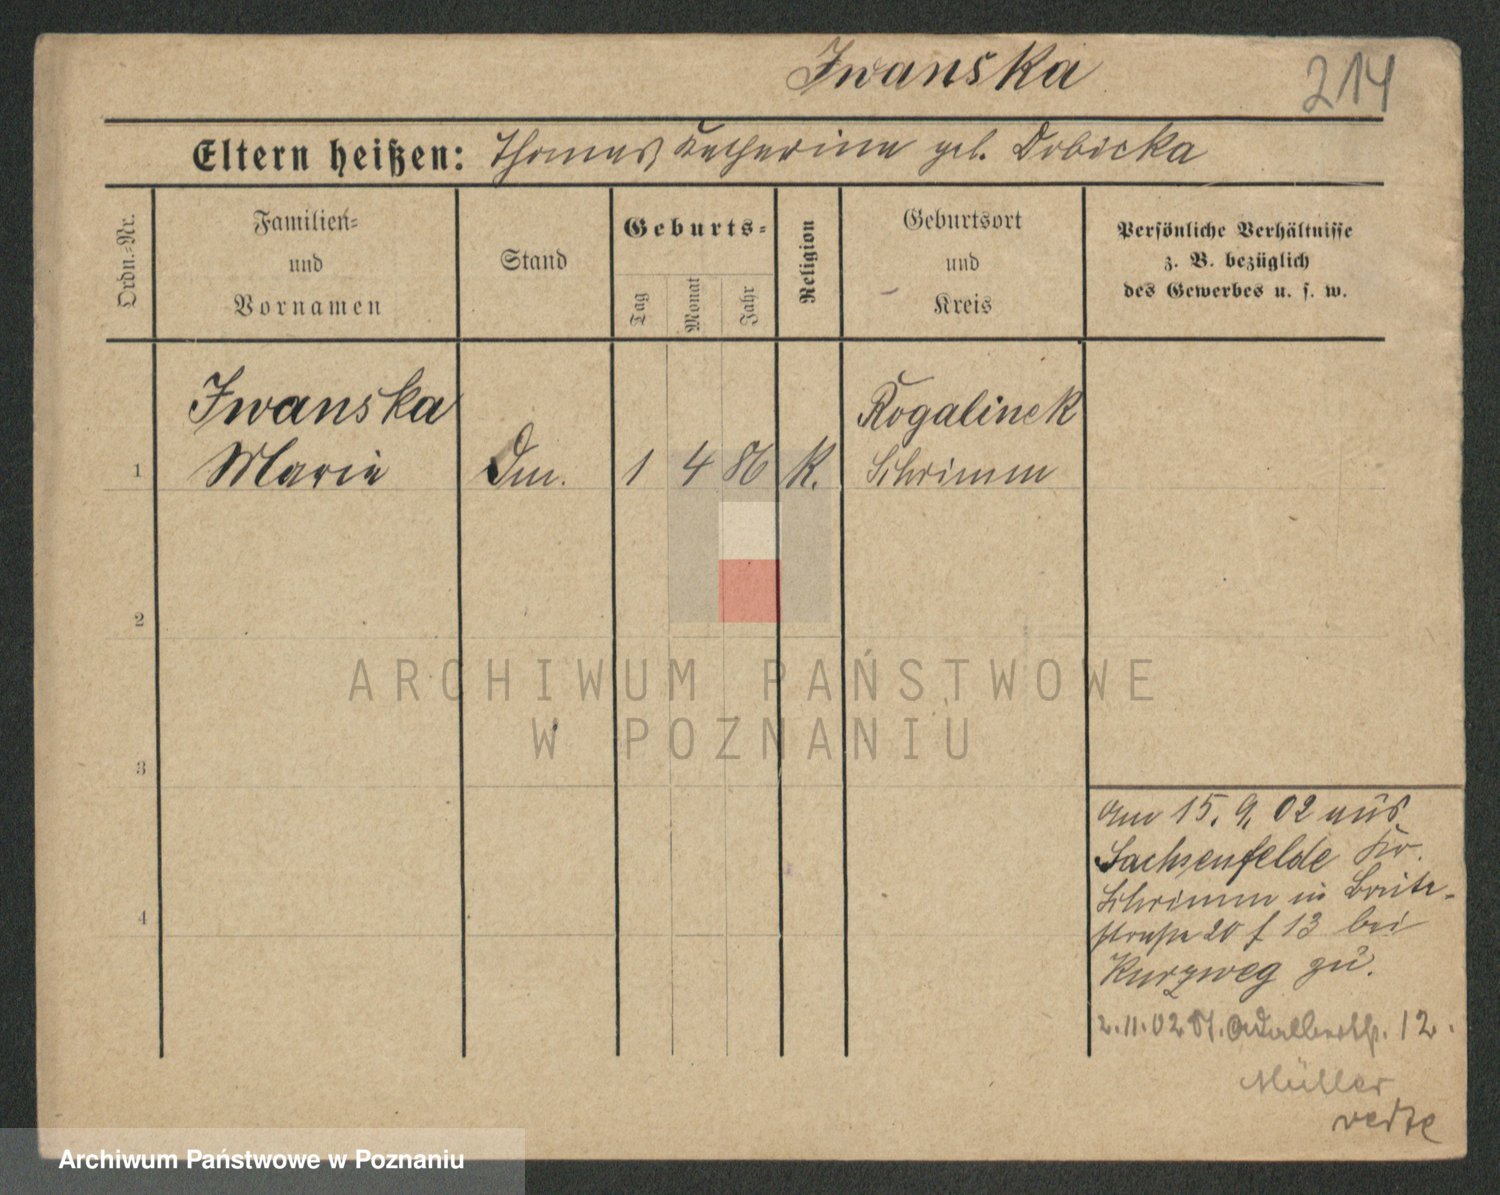 Iwanska 214
Eltern heißen: Thomas, Katharina geb. Dobicka
Ordn.-Nr.
Familien-
und
Vornamen
Stand
Geburts-
Tag
Monat
Jahr
Religion
Geburtsort
und
Kreis
Persönliche Verhältnisse
z. B. bezüglich
des Gewerbes u. s. w.
Iwanska
Marie
1
Dm.
1 4 86
K.
Rogalinek
Schrimm
2
3
4
Am 15. 9. 02 aus
Sachsenfelde Kr.
Schrimm in Breite-
straße 20 f 13 bei
Kurzweg zu.
2.11.02 St. Adalbertstr. 12.
Müller
verte
ARCHIWUM PAŃSTWOWE
W POZNANIU
Archiwum Państwowe w Poznaniu